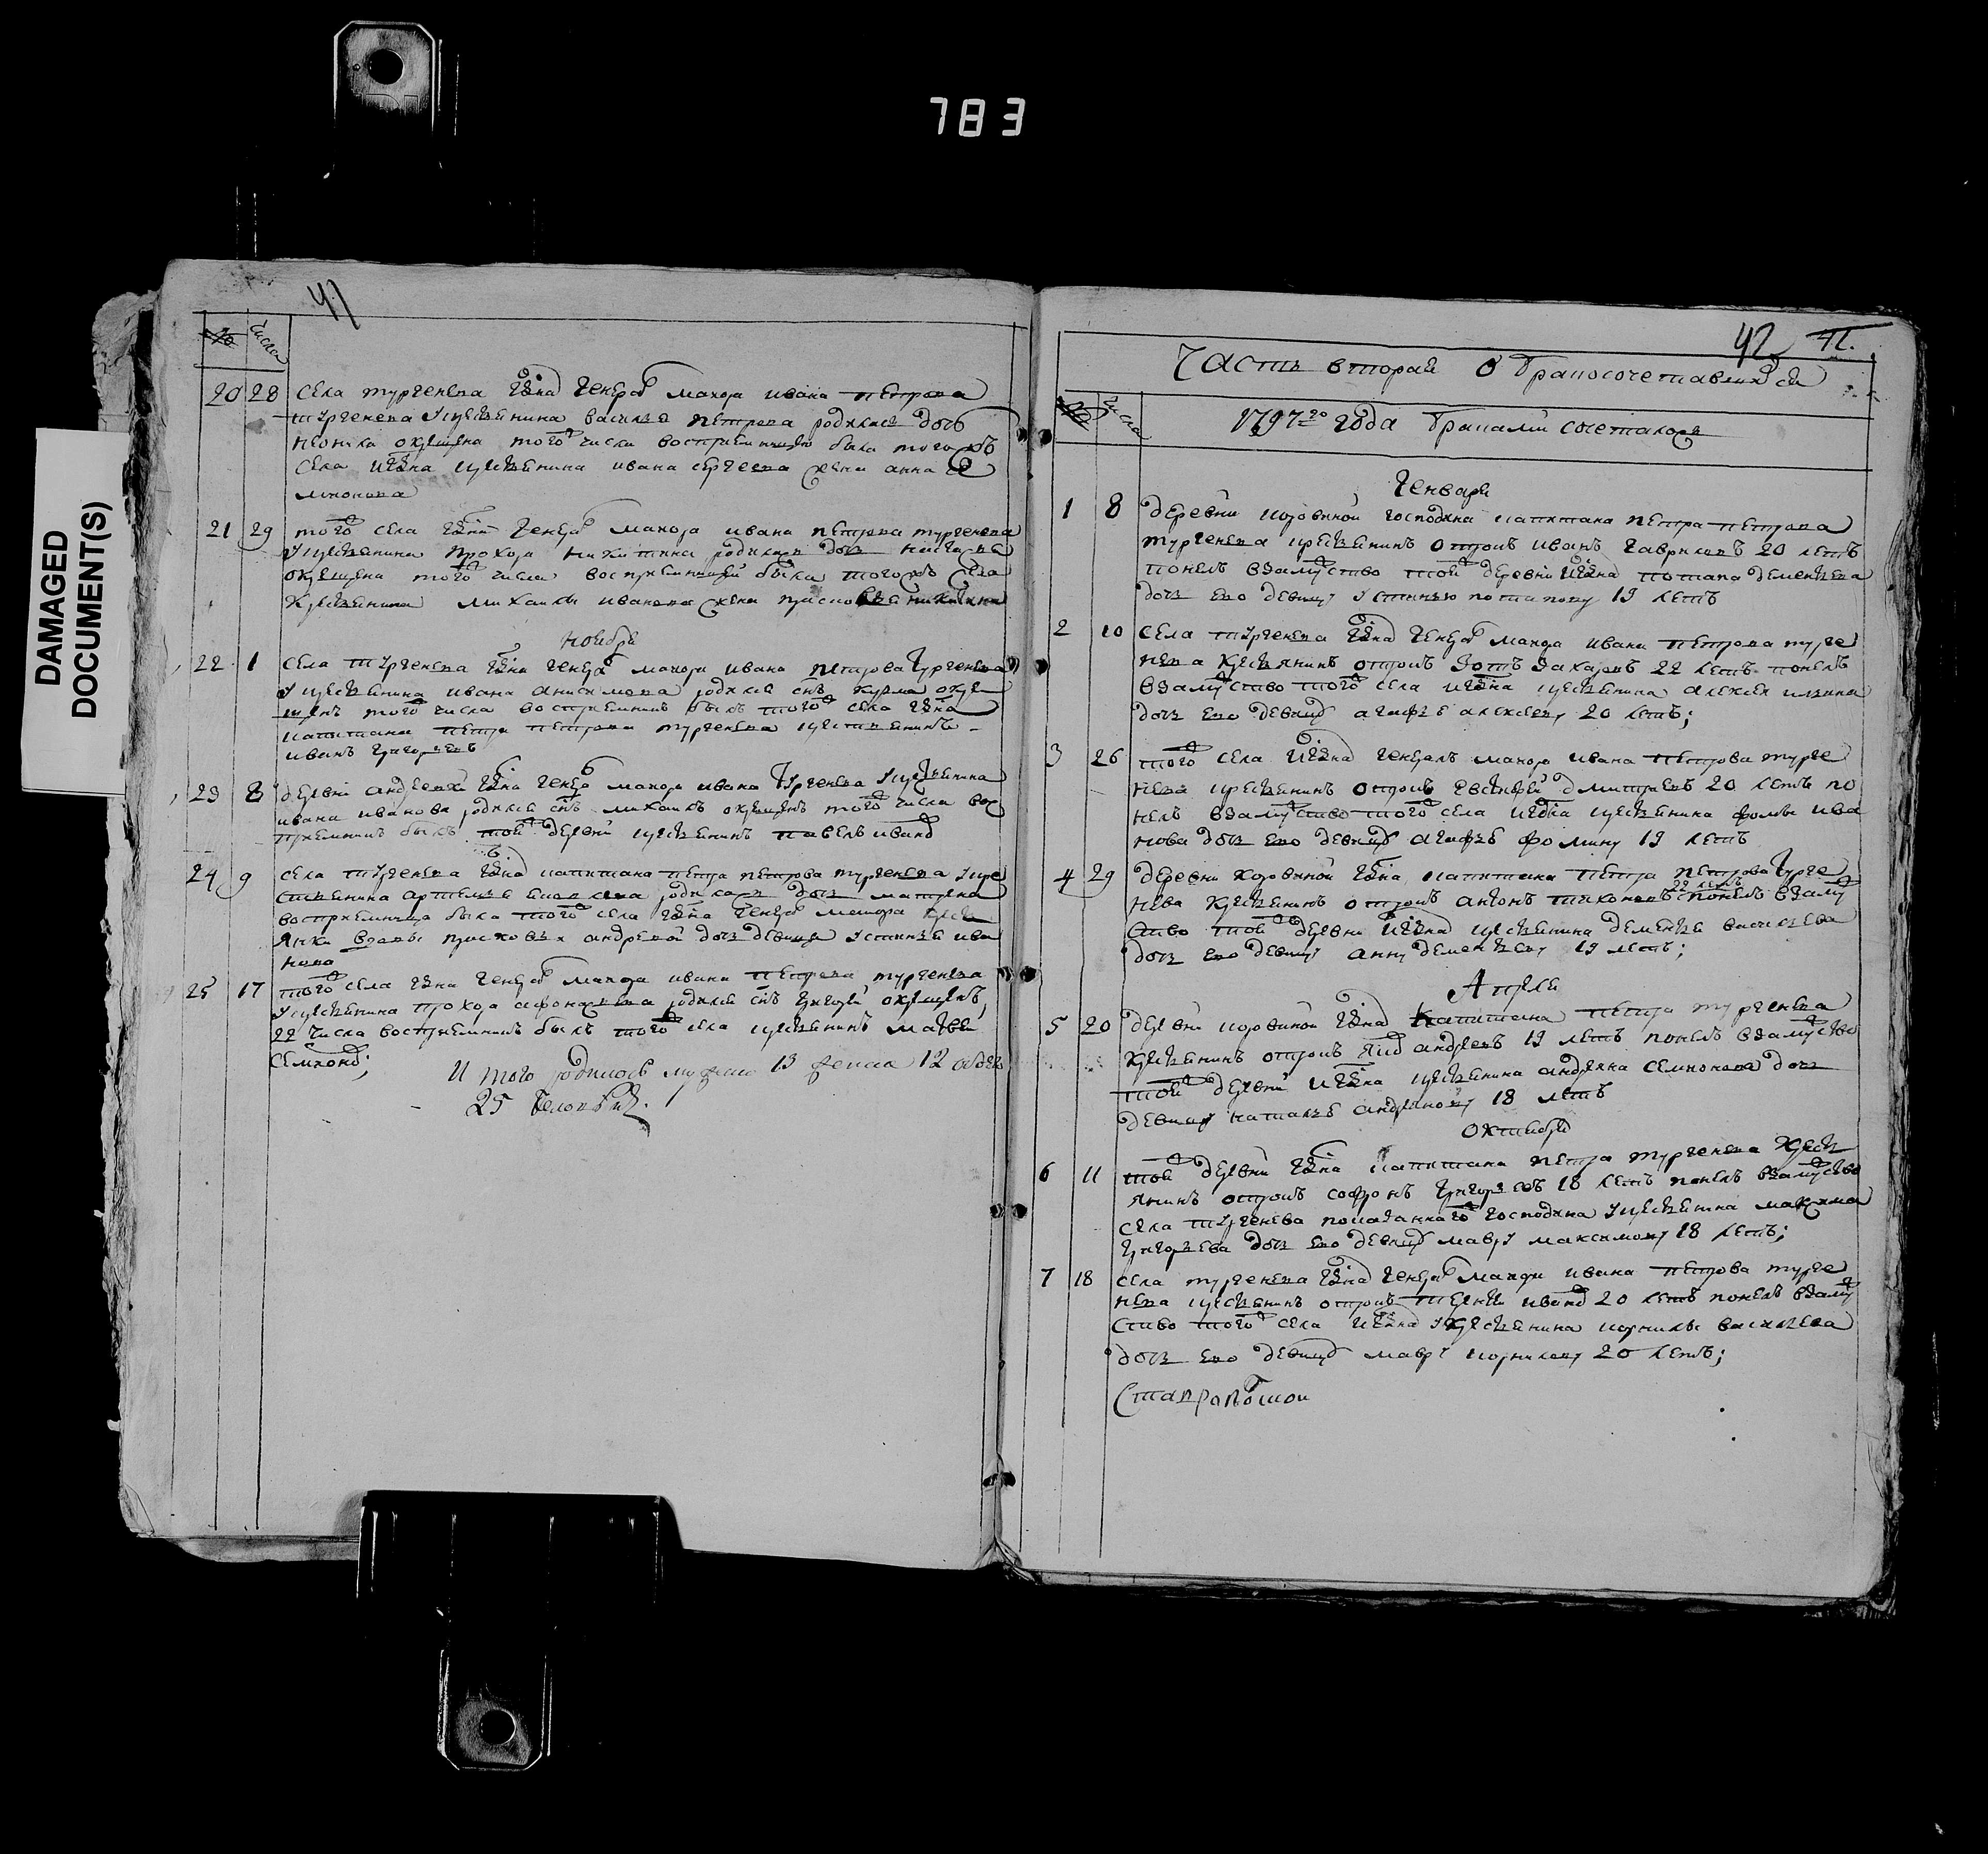 783
DAMAGED
DOCUMENT(S)
41
№ числа
20 28 села тургенева Гдна Генерал маиора ивана петрова
тургенева у крестьянина василья петрова родилась дочь
неонила окрещена того числа восприемницею была того жъ
села крестьянина ивана сергеева жена анна се
мионова
21 29 того села Гдна Генерал маиора ивана петрова тургенева
у крестьянина прохора никитина родилась дочь
окрещена того числа восприемницей была того жъ села
крестьянина михаилы иванова жена прасковья никитина
ноября
22 1 села тургенева Гдна генерал маиора ивана петрова тургенева
у крестьянина ивана анисимова родился снъ кузма окре
щенъ того числа восприемникъ былъ того села Гдна
капитана петра петрова тургенева крестьянинъ
иванъ григорьевъ
23 8 деревни Гдна генерал маиора ивана тургенева у крестьянина
ивана иванова родился снъ михаилъ окрещенъ того числа вос
приемникъ былъ той деревни крестьянинъ павелъ иванов
24 9 села тургенева Гдна капитана петра петрова тургенева у кре
стьянина артемья родилась дочь матрена
восприемница была того села Гдна генерал маиора кресть
янки вдовы прасковьи андреевой дочь девица устинья ива
нова
25 17 того села Гдна генерал маиора ивана петрова тургенева
у крестьянина прохора афонасьева родился снъ григорей окрещенъ
22 числа восприемникъ былъ того села крестьянинъ матвей
семионов;
И того родилось мужска 13 женска 12 обоего
25 человекъ.
42 41.
Часть вторая О бракосочетавшихся
№ числа
1797го года браками сочеталося
Генваря
1 8 деревни коровиной господина капитана петра петрова
тургенева крестьянинъ отрокъ иванъ гавриловъ 20 летъ
понелъ взамуство той деревни Гдна потапа дементьева
дочь ево девицу устинью потапову 19 летъ
2 10 села тургенева Гдна генерал маиора ивана петрова турге
нева крестьянинъ отрокъ зотъ захаровъ 22 летъ понелъ
взамуство того села Гдна крестьянина алексея ильина
дочь ево девицу агафье алексеву 20 летъ;
3 26 того села Гдна генералъ маиора ивана петрова турге
нева крестьянинъ отрокъ евстифей дмитревъ 20 летъ по
нелъ взамуство того села Гдна крестьянина фомы ива
нова дочь ево девицу агафье фомину 19 летъ
4 29 деревни коровиной Гдна капитана петра петрова турге
нева крестьянинъ отрокъ антонъ тихоновъ 22 летъ понелъ взаму
ство той деревни Гдна крестьянина дементья васильева
дочь ево девицу анну дементьеву 19 летъ;
Апреля
5 20 деревни коровиной Гдна капитана петра тургенева
крестьянинъ отрокъ андреевъ 19 летъ понелъ взамуство
той деревни Гдна крестьянина андреяна семионова дочь
девицу наталье андреянову 18 летъ
октября
6 11 той деревни Гдна капитана петра тургенева кресть
янинъ отрокъ софронъ григорьевъ 18 летъ понелъ взамуство
села тургенева показаннаго господина у крестьянина максима
григорьева дочь ево девицу мавру максимову 18 летъ;
7 18 села тургенева Гдна генерал маиора ивана петрова турге
нева крестьянинъ отрокъ иванов 20 летъ понелъ взаму
ство того села Гдна у крестьянина корнилы васильева
дочь ево девицу мавру корнилову 20 летъ;